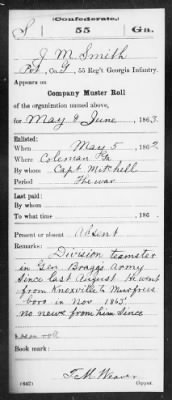 (Confederate.)
S 55 Ga.
J M Smith
Pvt, Co. G, 55 Reg't Georgia Infantry.
Appears on
Company Muster Roll
of the organization named above,
for May & June, 1863.
Enlisted:
When May 5, 1862
Where Coleman Ga
By whom Capt Mitchell
Period The war
Last paid:
By whom
To what time , 186 .
Present or absent Absent
Remarks: Division teamster
in Gen Braggs Army
since last August. He went
from Knoxville to Murfrees
boro in Nov 1863.
no news from him since
Book mark:
T. M. Weaver
(642) Copyist.